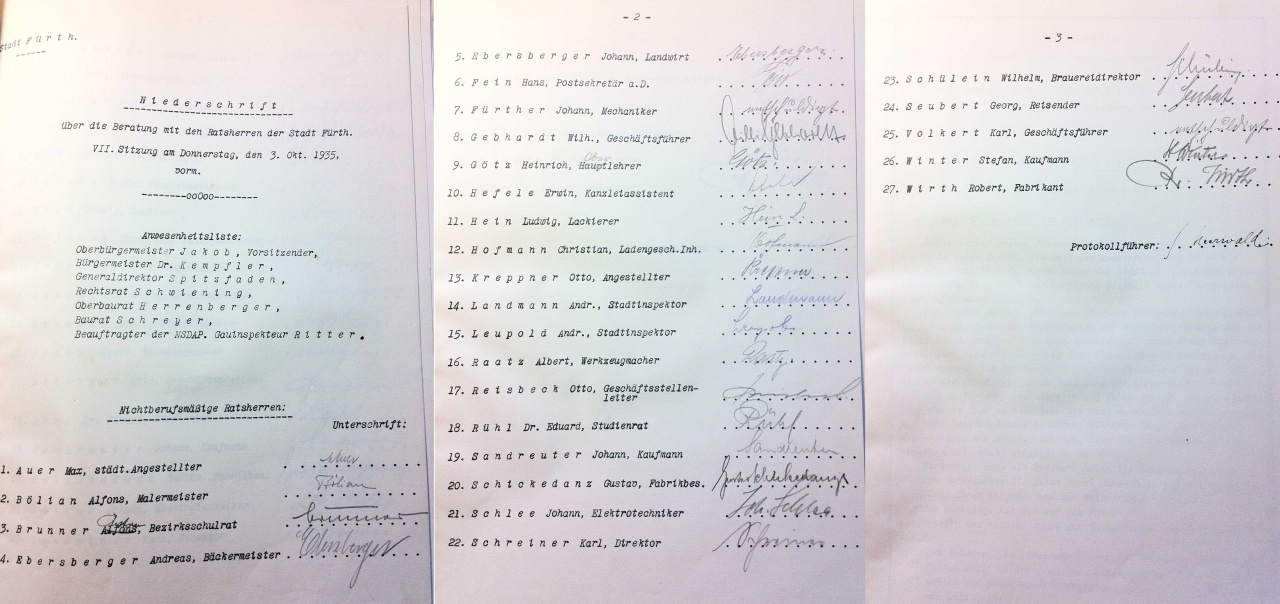 Stadt Fürth.
Niederschrift
über die Beratung mit den Ratsherren der Stadt Fürth.
VII. Sitzung am Donnerstag, den 3. Okt. 1935,
vorm.
--------ooOoo--------
Anwesenheitsliste:
Oberbürgermeister Jakob, Vorsitzender,
Bürgermeister Dr. Kempfler,
Generaldirektor Spitzfaden,
Rechtsrat Schwiening,
Oberbaurat Herrenberger,
Baurat Schreyer,
Beauftragter der NSDAP. Gauinspekteur Ritter.
Nichtberufsmäßige Ratsherren:
Unterschrift:
1. Auer Max, städt.Angestellter Auer
2. Bölian Alfons, Malermeister Bölian
3. Brunner Alfons, Bezirksschulrat Brunner
4. Ebersberger Andreas, Bäckermeister Ebersberger
- 2 -
5. Ebersberger Johann, Landwirt Ebersberger
6. Fein Hans, Postsekretär a.D. Fein
7. Fürther Johann, Mechaniker entschuldigt
8. Gebhardt Wilh., Geschäftsführer
9. Götz Heinrich, Hauptlehrer Ober Götz
10. Hefele Erwin, Kanzleiassistent
11. Hein Ludwig, Lackierer Hein L.
12. Hofmann Christian, Ladengesch.Inh. Hofmann
13. Kreppner Otto, Angestellter Kreppner
14. Landmann Andr., Stadtinspektor Landmann
15. Leupold Andr., Stadtinspektor
16. Raatz Albert, Werkzeugmacher Raatz
17. Reisbeck Otto, Geschäftsstellen-
leiter
18. Rühl Dr. Eduard, Studienrat Rühl
19. Sandreuter Johann, Kaufmann Sandreuter
20. Schickedanz Gustav, Fabrikbes. Gustav Schickedanz
21. Schlee Johann, Elektrotechniker Joh. Schlee
22. Schreiner Karl, Direktor Schreiner
- 3 -
23. Schülein Wilhelm, Brauereidirektor Schülein
24. Seubert Georg, Reisender Seubert
25. Volkert Karl, Geschäftsführer entschuldigt
26. Winter Stefan, Kaufmann St. Winter
27. Wirth Robert, Fabrikant R. Wirth
Protokollführer: